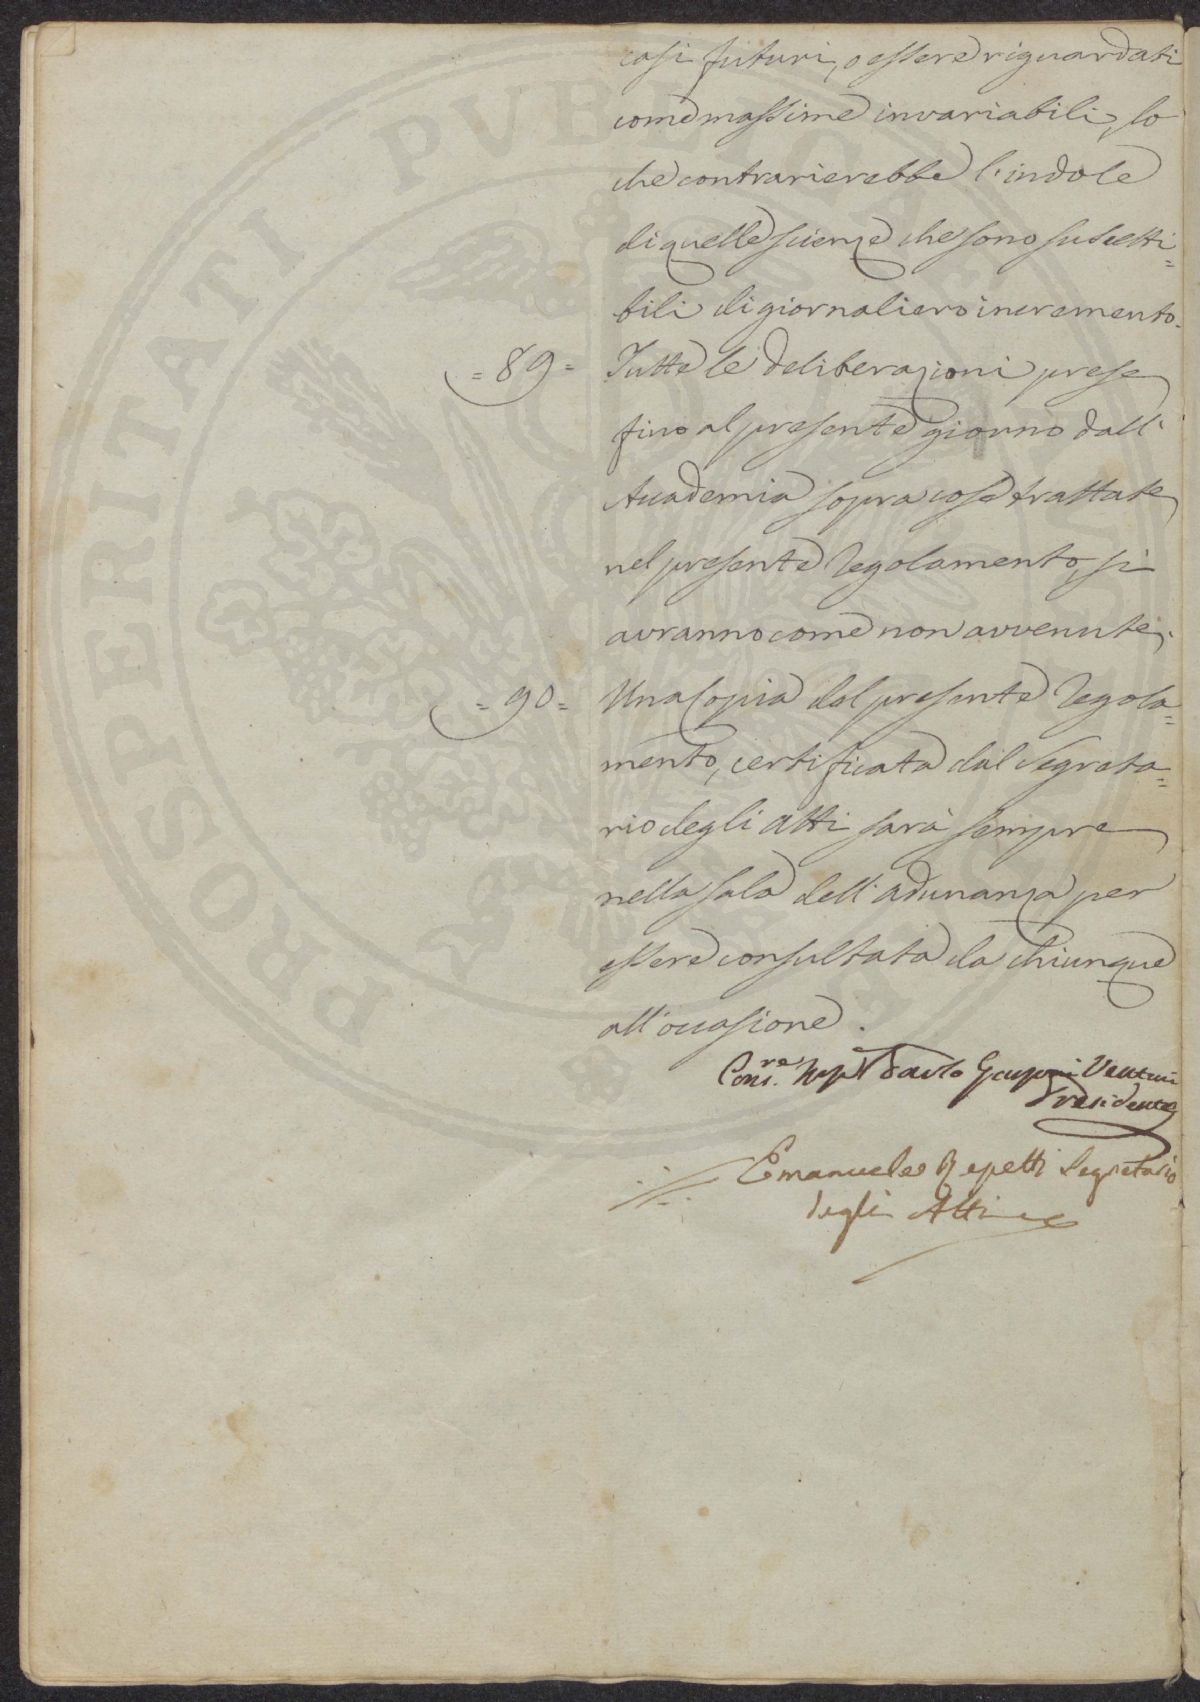 casi futuri, o essere riguardati
come massime invariabili, lo
che contrarierebbe l'indole
di quelle scienze che sono suscetti=
bili di giornaliero incremento.
= 89 = Tutte le deliberazioni prese
fino al presente giorno dall'
Accademia sopra cose trattate
nel presente Regolamento, si
avranno come non avvenute.
= 90 = Una Copia del presente Regola=
mento, certificata dal Segreta=
rio degli Atti sarà sempre
nella Sala dell'adunanza per
essere consultata da chiunque
all'occasione.
Cons.re Paolo Venturi
Presidente
Emanuele Repetti Segretario
degli Atti
PROSPERITATI PVBLICAE